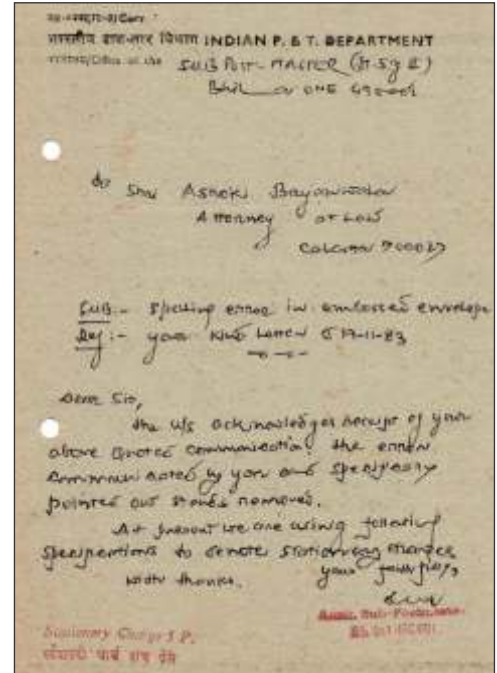 भारतीय डाक-तार विभाग INDIAN P. & T. DEPARTMENT
/Office of the SUB POST-MASTER
ONE
To Shri Ashok Bayanwala
Attorney at Law
Calcutta 700027
Sub:- Spelling error in embossed envelope
Ref:- your kind letter 17-11-83
Dear Sir,
the u/s acknowledges receipt of your
above quoted communication. the error
communicated by you and specifically
pointed out stands removed.
At present we are using following
to denote stationery charges
with thanks. your faithfully,
Stationery Charge 5 P.